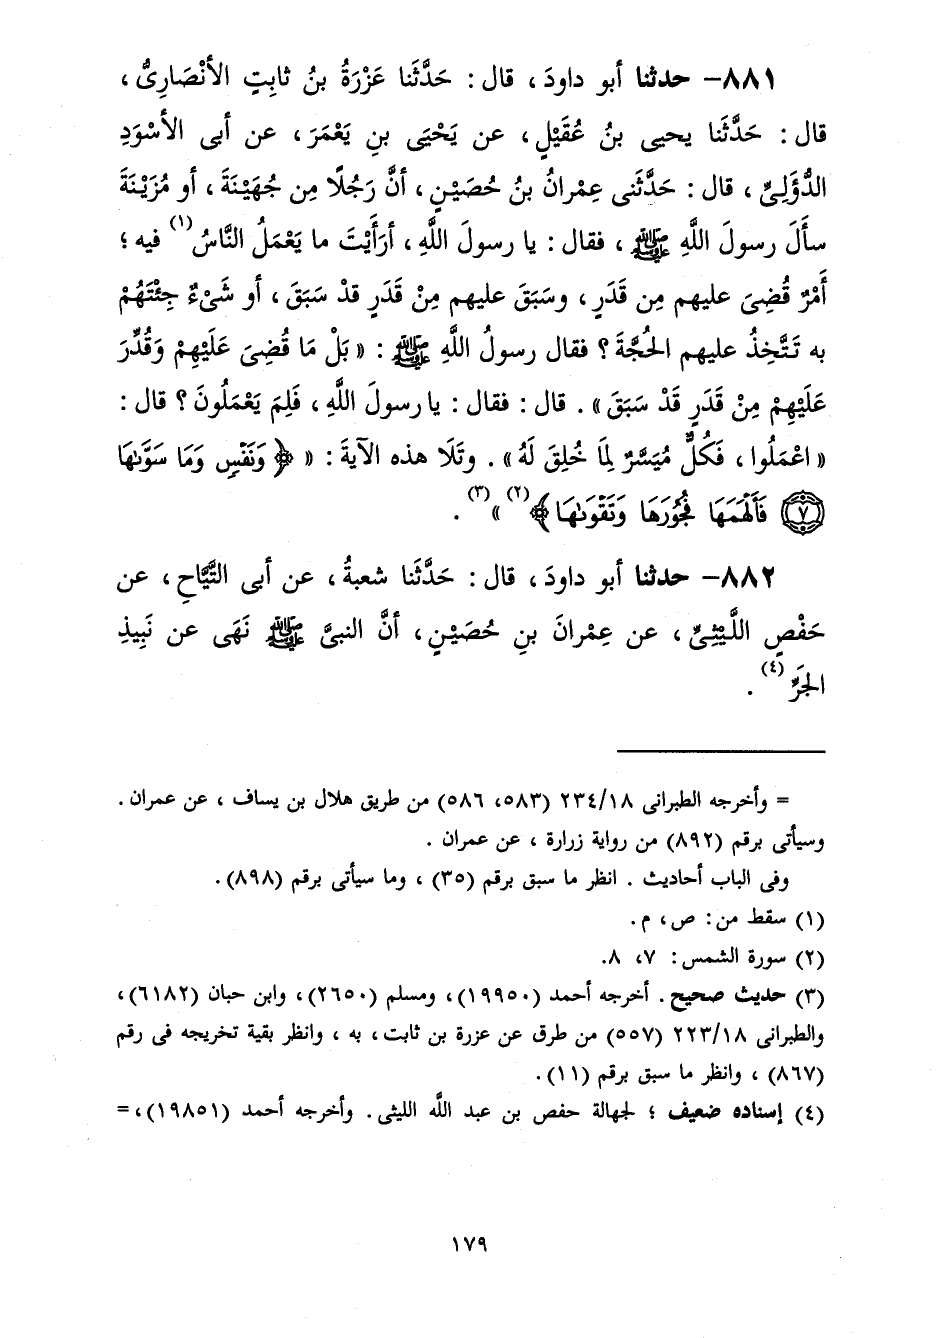 ٨٨١- حدثنا أبو داودَ ، قال : حَدَّثَنا عَزْرَةُ بنُ ثابِتٍ الأنْصَارِىُّ ،
قال : حَدَّثَنا يحيى بنُ عُقَيْلٍ ، عن يَحْيَى بنِ يَعْمَرَ ، عن أبى الأسْوَدِ
الدُّؤَلِىِّ ، قال : حَدَّثَنى عِمْرانُ بنُ حُصَيْنٍ ، أنَّ رَجُلًا مِن جُهَيْنَةَ ، أو مُزَيْنَةَ
سألَ رسولَ اللَّهِ ﷺ ، فقال : يا رسولَ اللَّهِ ، أرَأَيْتَ ما يَعْمَلُ النَّاسُ (١) فيه ؛
أَمْرٌ قُضِىَ عليهم مِن قَدَرٍ ، وسَبَقَ عليهم مِنْ قَدَرٍ قدْ سَبَقَ ، أو شَىْءٌ جِئْتَهُمْ
به تَتَّخِذُ عليهم الحُجَّةَ ؟ فقال رسولُ اللَّهِ ﷺ : « بَلْ مَا قُضِىَ عَلَيْهِمْ وَقُدِّرَ
عَلَيْهِمْ مِنْ قَدَرٍ قَدْ سَبَقَ » . قال : فقال : يا رسولَ اللَّهِ ، فَلِمَ يَعْمَلُونَ ؟ قال :
« اعْمَلُوا ، فَكُلٌّ مُيَسَّرٌ لِمَا خُلِقَ لَهُ » . وتَلَا هذه الآيةَ : « ﴿ وَنَفْسٍ وَمَا سَوَّىٰهَا
٧ فَأَلْهَمَهَا فُجُورَهَا وَتَقْوَىٰهَا ﴾ (٢) » (٣) .
٨٨٢- حدثنا أبو داودَ ، قال : حَدَّثَنا شعبةُ ، عن أبى التَّيَّاحِ ، عن
حَفْصٍ اللَّيْثِىِّ ، عن عِمْرانَ بنِ حُصَيْنٍ ، أنَّ النبىَّ ﷺ نَهَى عن نَبِيذِ
الجَرِّ (٤) .
= وأخرجه الطبرانى ٢٣٤/١٨ (٥٨٣، ٥٨٦) من طريق هلال بن يساف ، عن عمران .
وسيأتى برقم (٨٩٢) من رواية زرارة ، عن عمران .
وفى الباب أحاديث . انظر ما سبق برقم (٣٥) ، وما سيأتى برقم (٨٩٨) .
(١) سقط من : ص ، م .
(٢) سورة الشمس : ٧، ٨.
(٣) حديث صحيح . أخرجه أحمد (١٩٩٥٠)، ومسلم (٢٦٥٠)، وابن حبان (٦١٨٢)،
والطبرانى ٢٢٣/١٨ (٥٥٧) من طرق عن عزرة بن ثابت ، به ، وانظر بقية تخريجه فى رقم
(٨٦٧) ، وانظر ما سبق برقم (١١) .
(٤) إسناده ضعيف ؛ لجهالة حفص بن عبد اللَّه الليثى . وأخرجه أحمد (١٩٨٥١)، =
١٧٩